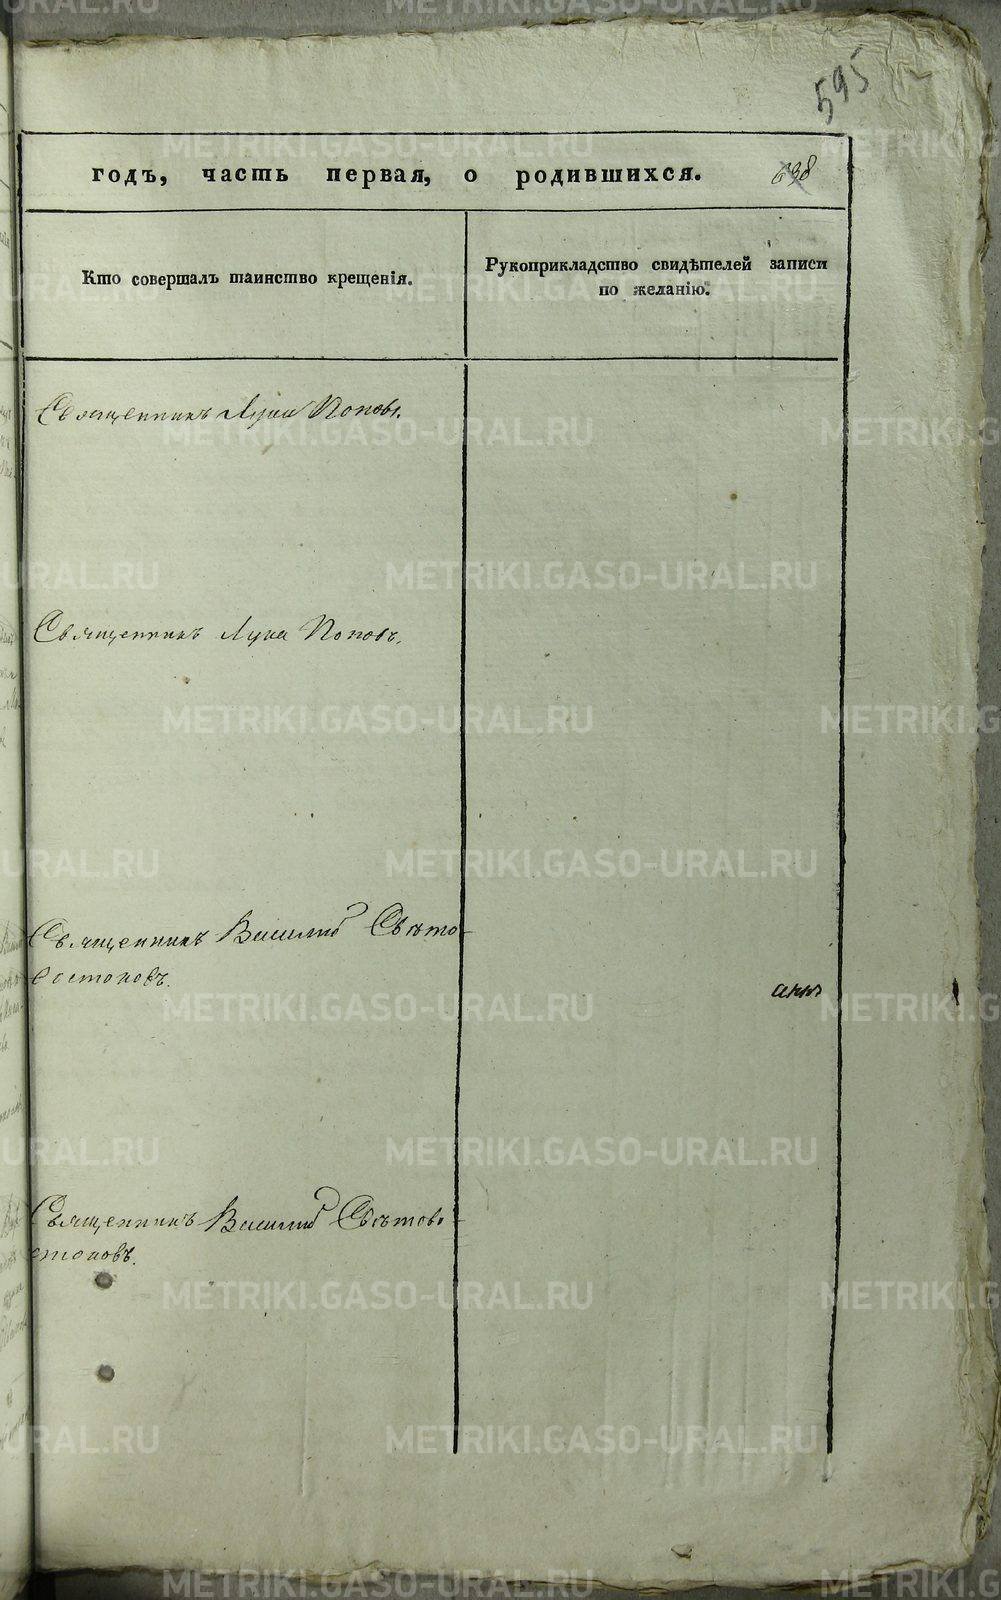 595
годъ, часть первая, о родившихся.
638
Кто совершалъ таинство крещенія.
Рукоприкладство свидѣтелей записи
по желанію.
Священникъ Лука Поповъ.
Священникъ Лука Поповъ.
Священникъ Василий Свѣто-
востоковъ.
Священникъ Василий Свѣтово-
стоковъ.
METRIKI.GASO-URAL.RU